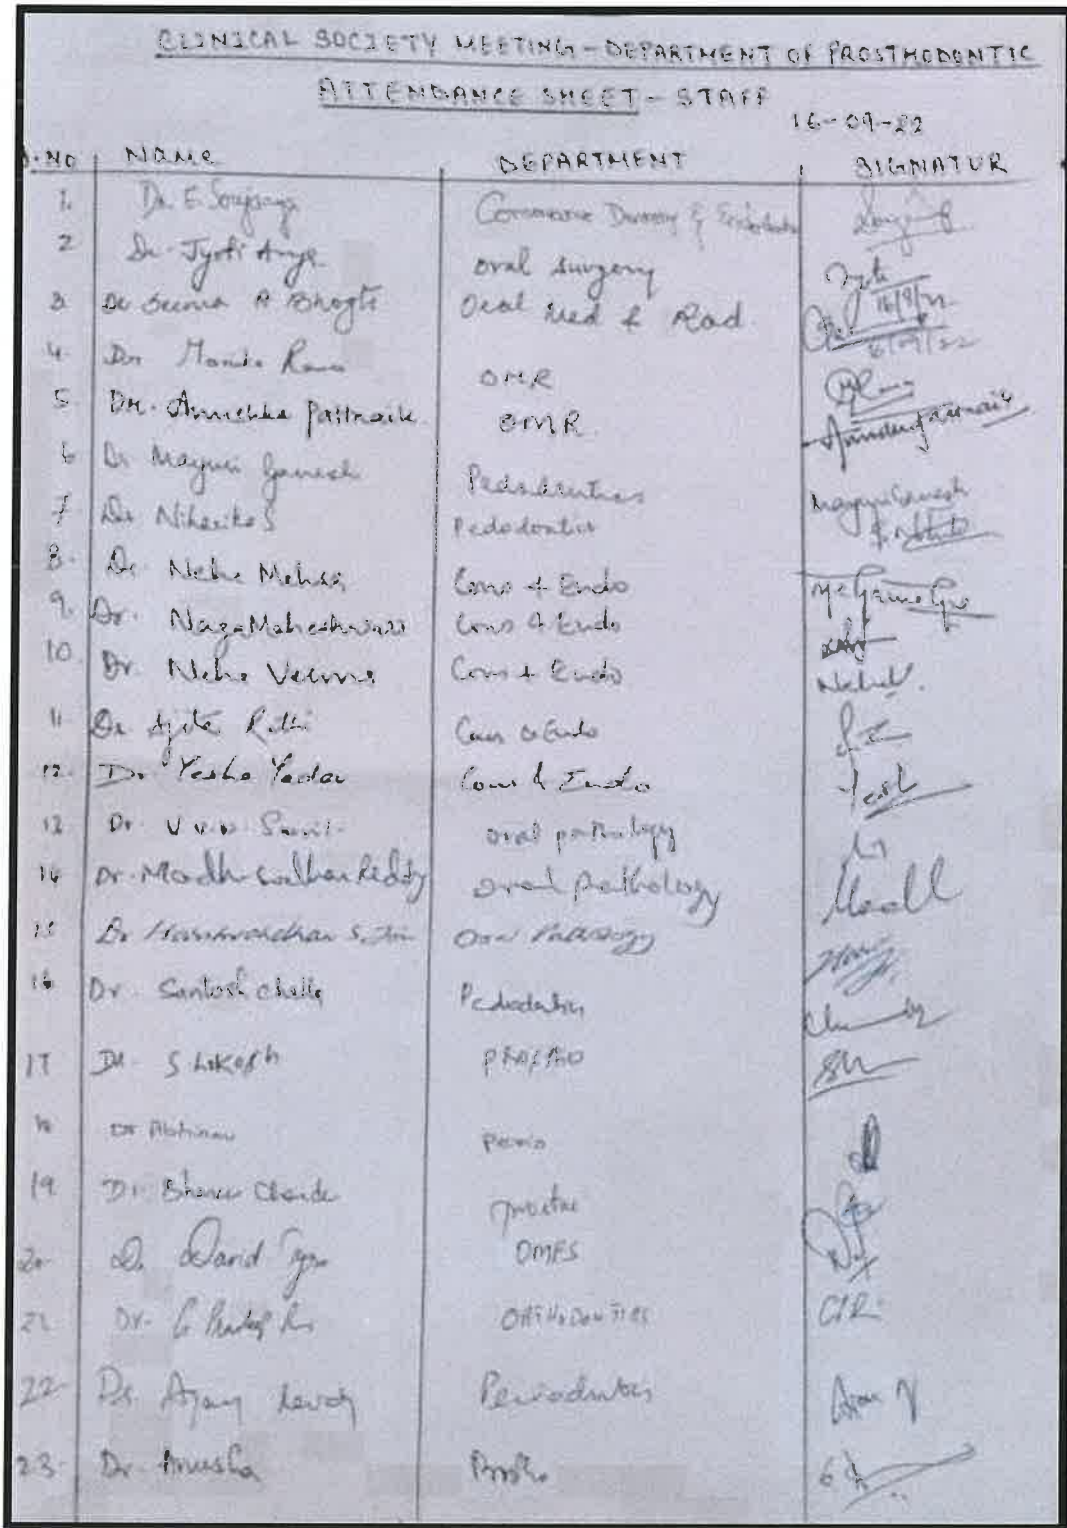 CLINICAL SOCIETY MEETING - DEPARTMENT OF PROSTHODONTIC
ATTENDANCE SHEET - STAFF
16-09-22
S.NO NAME DEPARTMENT SIGNATUR
1. Dr. E Soujanya
2 Dr. Jyoti oral surgery Jyoti 16/9/22
3 Dr Seema R Bhogte Oral Med & Rad. 16/09/22
4. Dr OMR
5 DR. Anushka Pattnaik OMR
6 Dr Mayuri Ganesh Pedodontics Mayuri Ganesh
7 Dr Niharika S Pedodontics
8. Dr. Neha Mehra Cons & Endo
9. Dr. NagaMaheshwari Cons & Endo
10. Dr. Neha Verma Cons & Endo NehaV.
11 Dr Ajita Rathi Cons & Endo
12. Dr Yesha Yadav Cons & Endo Yesh
13 Dr oral pathology
14 Dr. Madhusudhan Reddy oral pathology
15 Dr Harshvardhan S. Oral Pathology
16 Dr. Santosh Challa Pedodontics
17 DR. S LOKESH PROSTHO
18 Dr Abhinav perio
19 Dr Chandu
20 Dr David OMFS
21 Dr. G ORTHODONTICS
22 Dr. Ajay Reddy Periodontics
23. Dr. Anusha Prostho